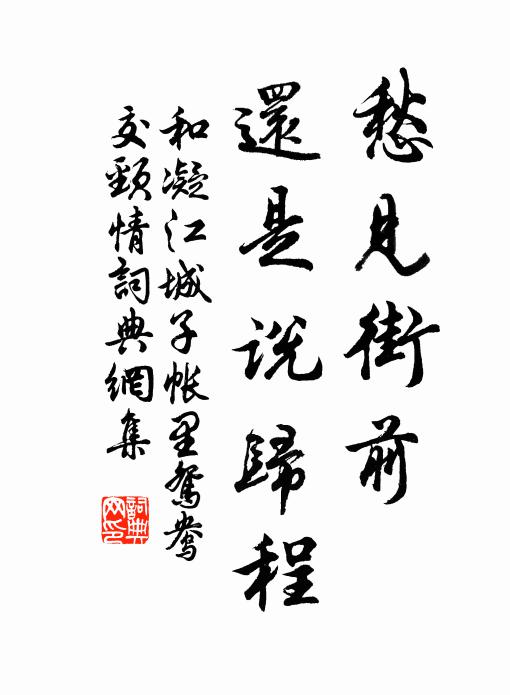 愁見街前
還是説歸程
和凝江城子帳里鴛鴦
交頸情詞典網集
詞典網印